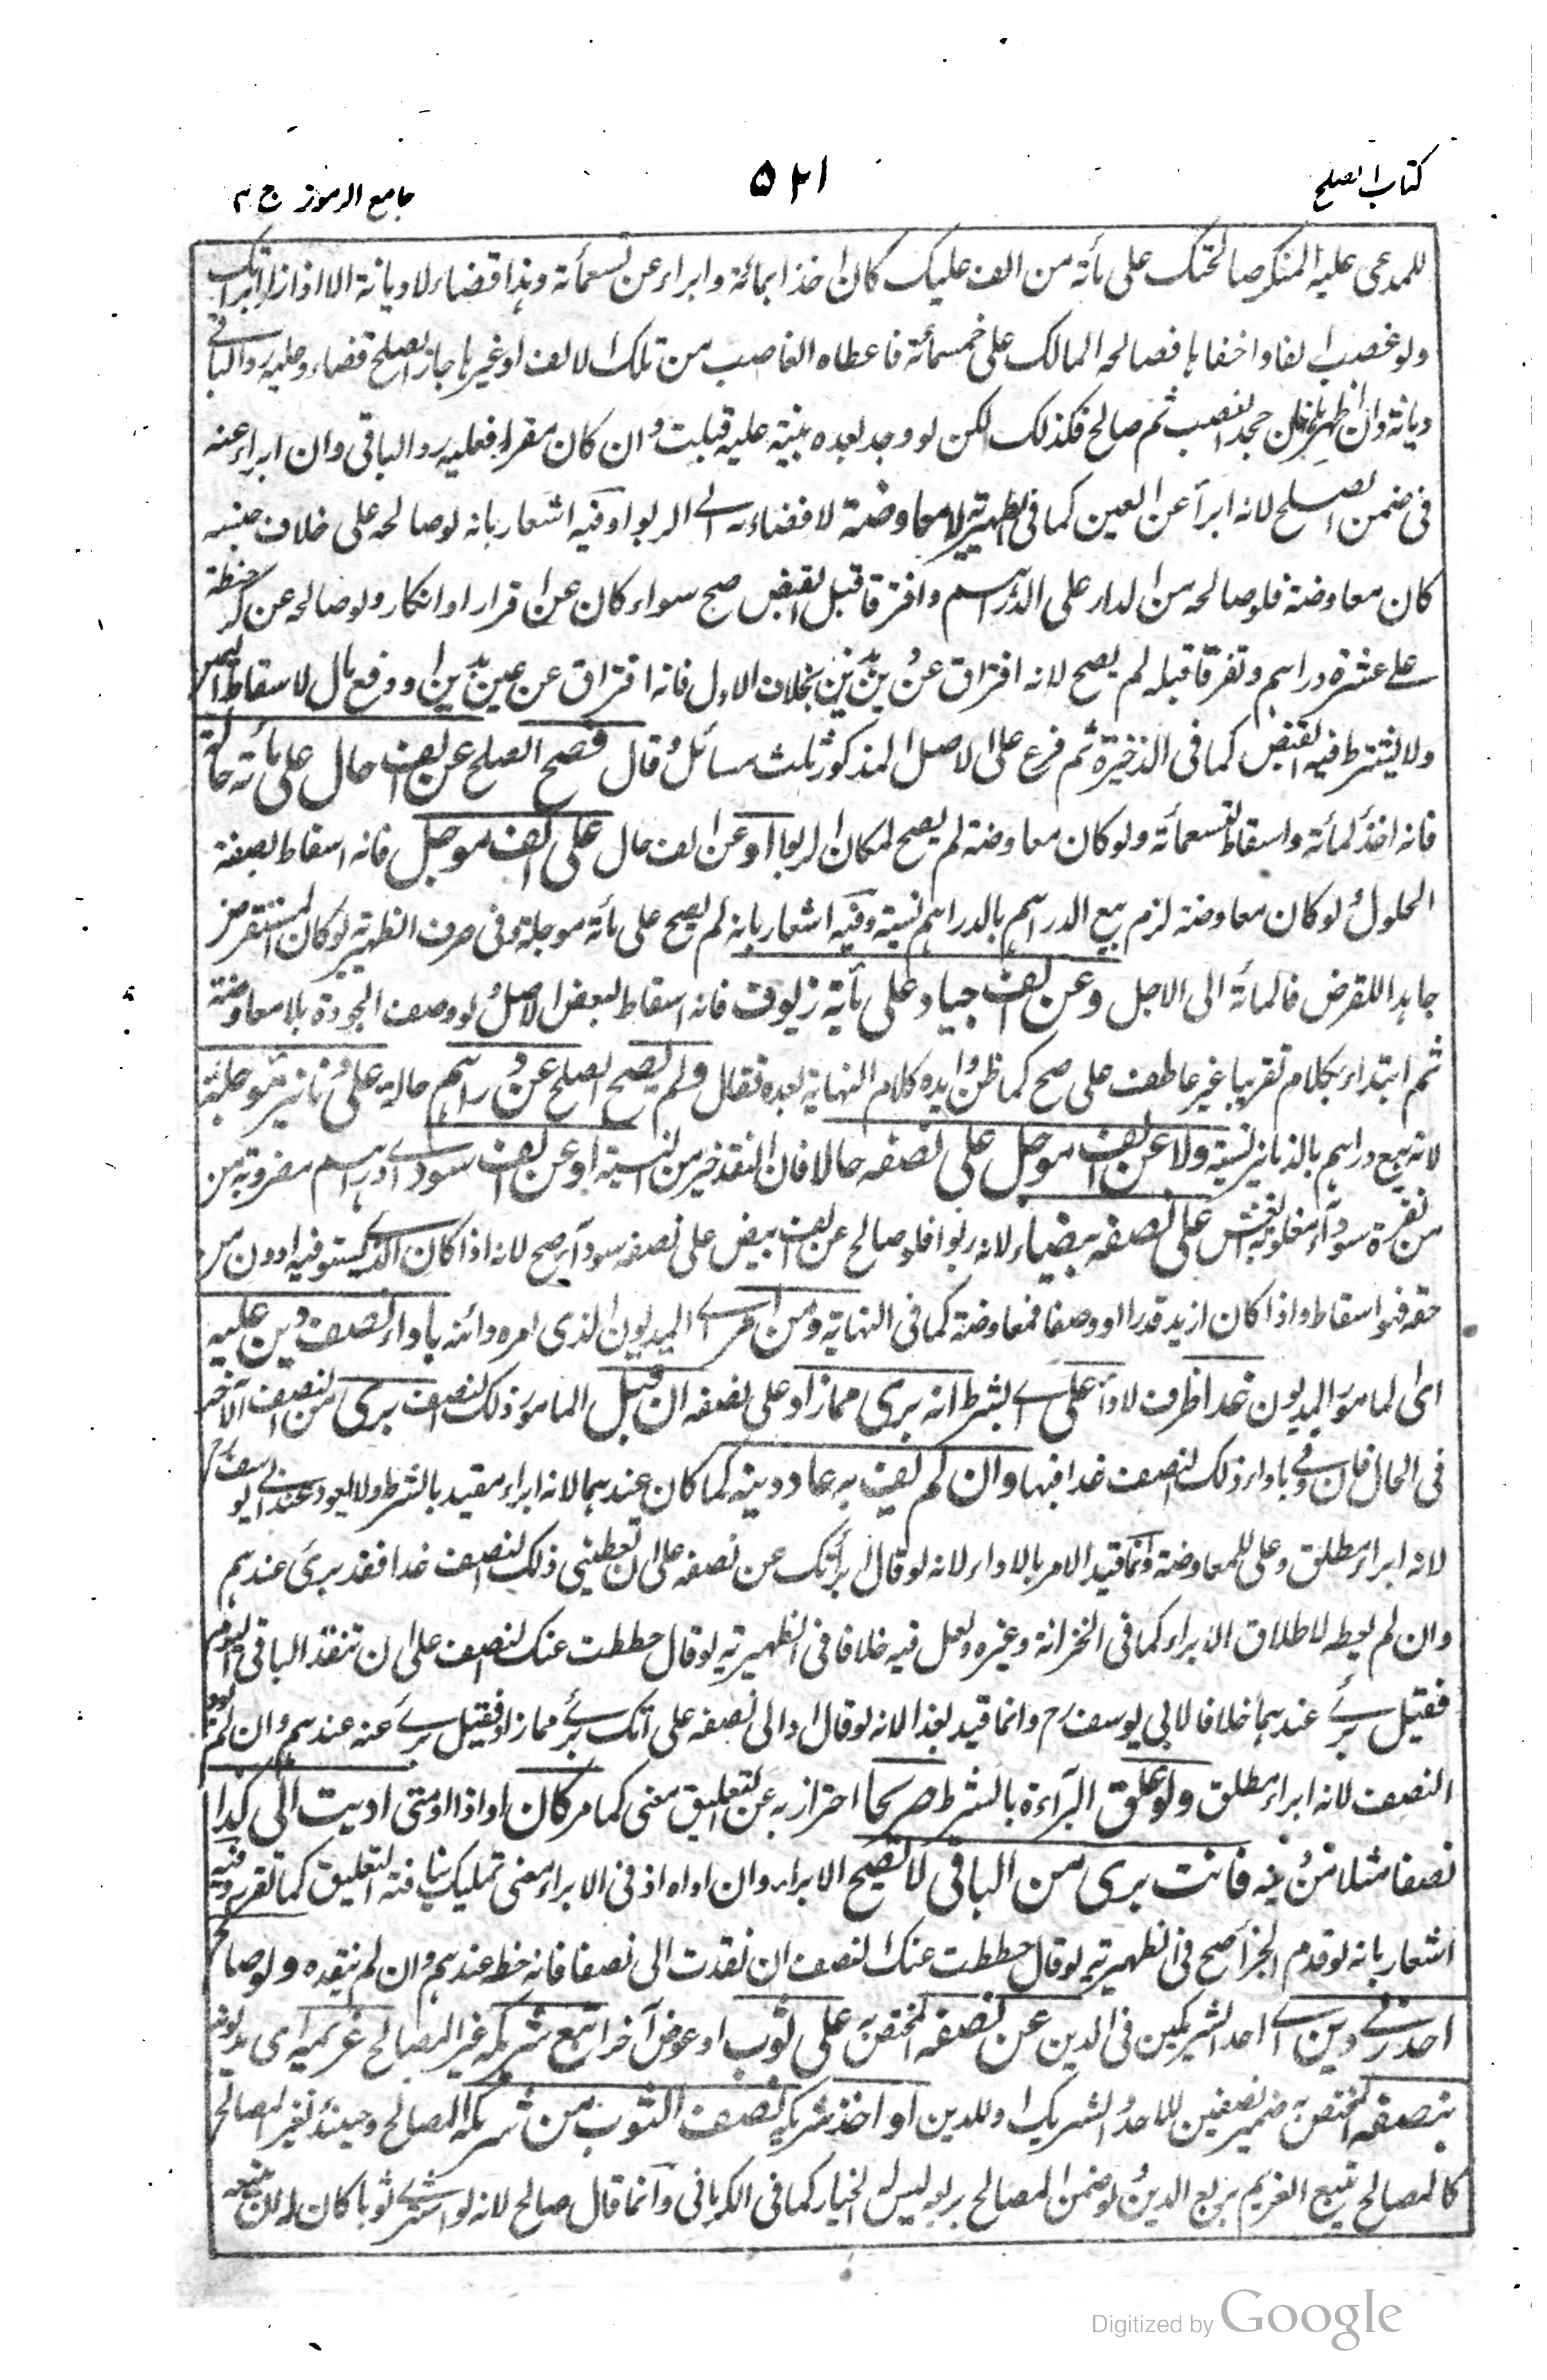 كتاب الصلح
٥٢١
جامع الرموز ج ٣
للمدعى عليه المنكر صالحتك على مأة من الف عليك كان اخذا بمائة وابراء عن تسعمأة وهذا قضاء لا ديانة الا اذا زاد ابرأتك
ولو غصب الفا واخفاها فصالحه المالك على خمسمائة فاعطاه الغاصب من تلك الالف او غيرها جاز الصلح قضاء وعليه رد الباقى
ديانة وان جحد الغصب ثم صالح فكذلك لكن لو وجد بعده بينة عليه قبلت وان كان مقرا فعليه رد الباقى وان ابراء عنه
فى ضمن الصلح لانه ابرأ عن العين كما فى الظهيرية لا معاوضة لافضاءه الى الربوا وفيه اشعار بانه لو صالحه على خلاف جنسه
كان معاوضة فلو صالحه من الدار على الدراهم وافترقا قبل القبض صح سواء كان عن اقرار او انكار ولو صالحه عن كر حنطة
على عشرة دراهم وتفرقا قبله لم يصح لانه افتراق عن دين بدين بخلاف الاول فانه افتراق عن عين بدين او دفع مال لاسقاط اليمين
ولا يشترط فيه القبض كما فى الذخيرة ثم فرع على الاصل المذكور ثلث مسائل وقال فصح الصلح عن الف حال على مأة حالة
فانه اخذ لمأة واسقاط لتسعمأة ولو كان معاوضة لم يصح لمكان الربوا او عن الف حال على الف موجل فانه اسقاط لصفة
الحلول ولو كان معاوضة لزم بيع الدراهم بالدراهم نسية وفيه اشعار بانه لم يصح على مأة موجلة وفى صرف الظهيرية لو كان المستقرض
جاهدا للقرض فالمائة الى الاجل وعن الف جياد على مأية زيوف فانه اسقاط لبعض الاصل ولوصف الجودة بلا معاوضة
ثم ابتداء بكلام تقريبا غير عاطف على صح كما ظن وايده كلام النهاية بعده فقال ولم يصح الصلح عن دراهم حالية على دنانير موجلة
لانه بيع دراهم بالدنانير نسية ولا عن الف موجل على نصفه حالا فان النقد خير من النسية او عن الف سود اى دراهم مضروبة من
من نقرة سوداء مغلوبة الغش على نصفه بيضاء لانه ربوا فلو صالح عن الف ابيض على نصفه سوداء صح لانه اذا كان الذى يستوفيه ادون من
حقه فهو اسقاط واذا كان ازيد قدرا او وصفا فمعاوضة كما فى النهاية ومن امر اى المديون الذى امره دائنه باداء نصف دين عليه
اى المامور المديون غدا ظرف لاداء على اى بشرط انه برى مما زاد على نصفه ان قبل المامور ذلك النصف برى من النصف الآخر
فى الحال فان وفى باداء ذلك النصف غدا فبها وان لم يف به عاد دينه كما كان عندهما لانه ابراء مقيد بالشرط ولا يعود عند ابى يوسف رح
لانه ابراء مطلق وعلى للمعاوضة وانما قيد الامر بالاداء لانه لو قال ابرأتك عن نصفه على ان تعطينى ذلك النصف غدا فقد برئ عندهم
وان لم يعطه لاطلاق الابراء كما فى الخزانة وغيره ولعل فيه خلافا فى الظهيرية لو قال حططت عنك النصف على ان تنقد الباقى اليوم
فقيل برئ عندهما خلافا لابى يوسف رح وانما قيد بغدا لانه لو قال اد الى نصفه على انك برئ مما زاد فقيل برئ عنه عندهم وان لم يود
النصف لانه ابراء مطلق ولو علق البراءة بالشرط صريحا احتراز به عن التعليق معنى كما مر كان او اذا او متى اديت الى كذا
نصفا مثلا من دينه فانت برى من الباقى لا تصح الابراء وان اداه اذ فى الابراء معنى تمليك ينافيه التعليق كما تقرر وفيه
اشعار بانه لو قدم الجزاء صح فى الظهيرية لو قال حططت عنك النصف ان نقدت الى نصفا فانه حط عندهم وان لم ينقده ولو صالح
احد ربى دين اى احد الشريكين فى الدين عن نصفه المختص به على ثوب او عوض آخر اتبع شريكه غير المصالح غريمه اى مديونه
بنصفه المختص به ضمير نصفين للاحد الشريك او للدين او اخذ شريكه نصف الثوب من شريكه المصالح وحينئذ لغير المصالح
كالمصالح تتبع الغريم بربع الدين ولو ضمن المصالح ربعه ليس له الخيار كما فى الكرمانى وانما قال صالح لانه لو اشترى ثوبا كان له ان يضمنه
Digitized by Google